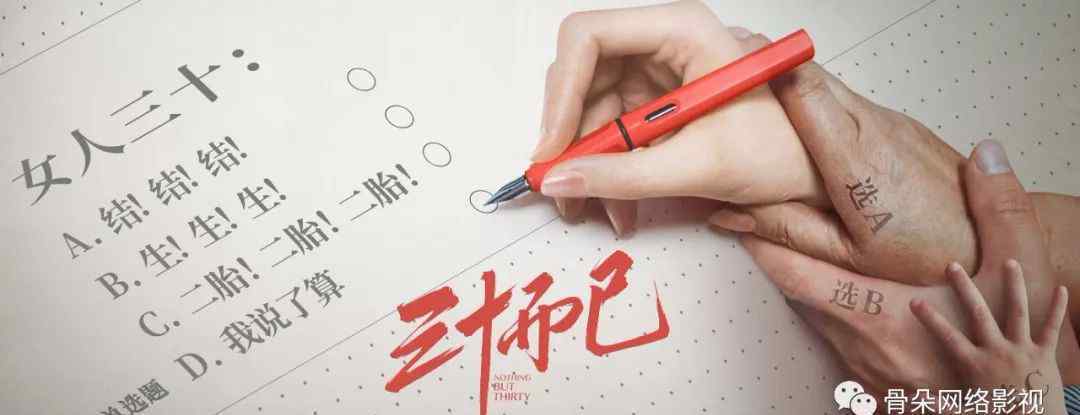 女人三十：
A. 结! 结! 结!
B. 生! 生! 生!
C. 二胎! 二胎! 二胎!
D. 我说了算
单选题
三十而已
NOTHING
BUT
THIRTY
选A
选B
选C
骨朵网络影视